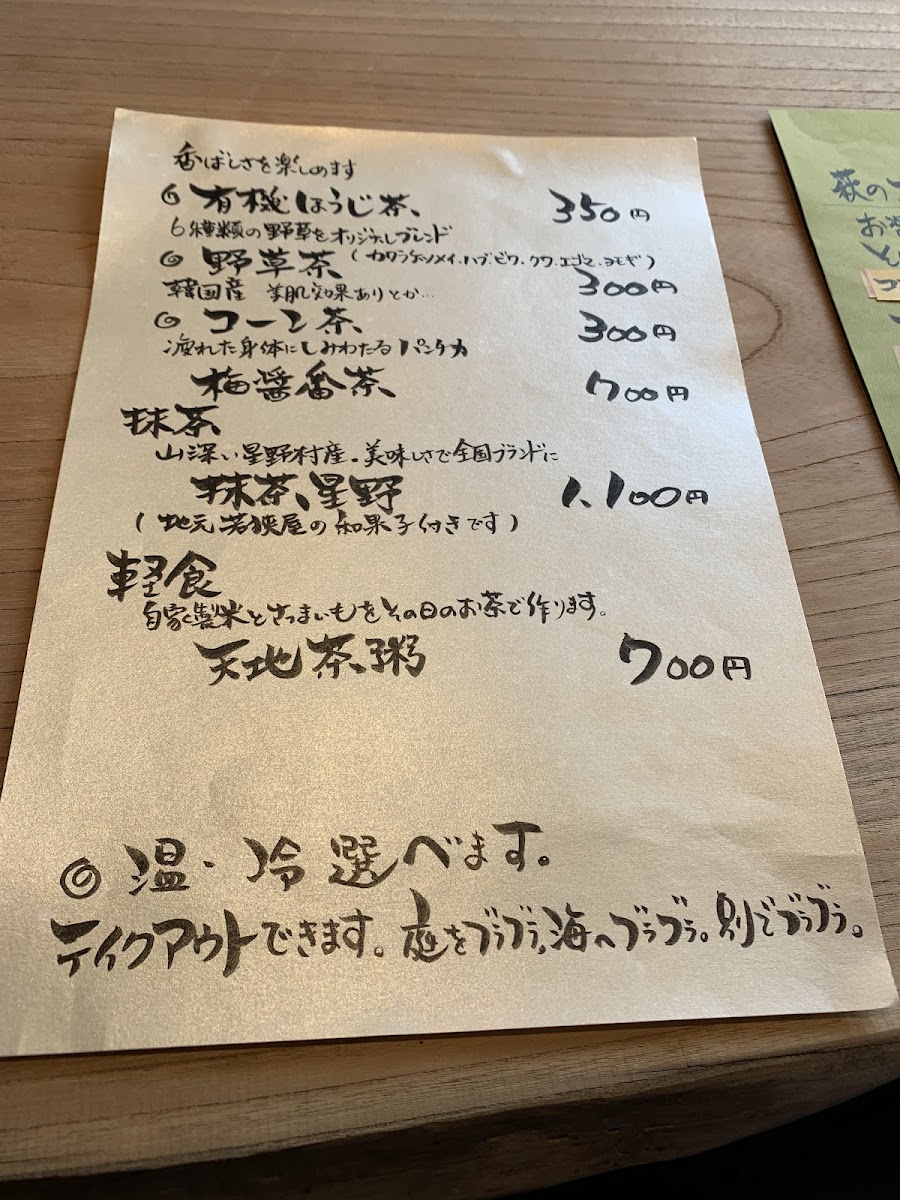 香ばしさを楽しめます
◎有機ほうじ茶、 350円
6種類の野草をオリジナルブレンド
◎野草茶(カワラケツメイ.ハブ.ビワ.クワ.エゴマ.ヨモギ)
300円
韓国産 美肌効果ありとか…
◎コーン茶、 300円
疲れた身体にしみわたる
梅醤番茶、 700円
抹茶
山深い星野村産.美味しさで全国ブランドに
抹茶、星野 1,100円
(地元若狭屋の和菓子付きです)
軽食
自家製米とさつまいもをその日のお茶で作ります。
天地茶粥 700円
◎温・冷選べます。
テイクアウトできます。庭をブラブラ,海へブラブラ。別でブラブラ。
萩の
お